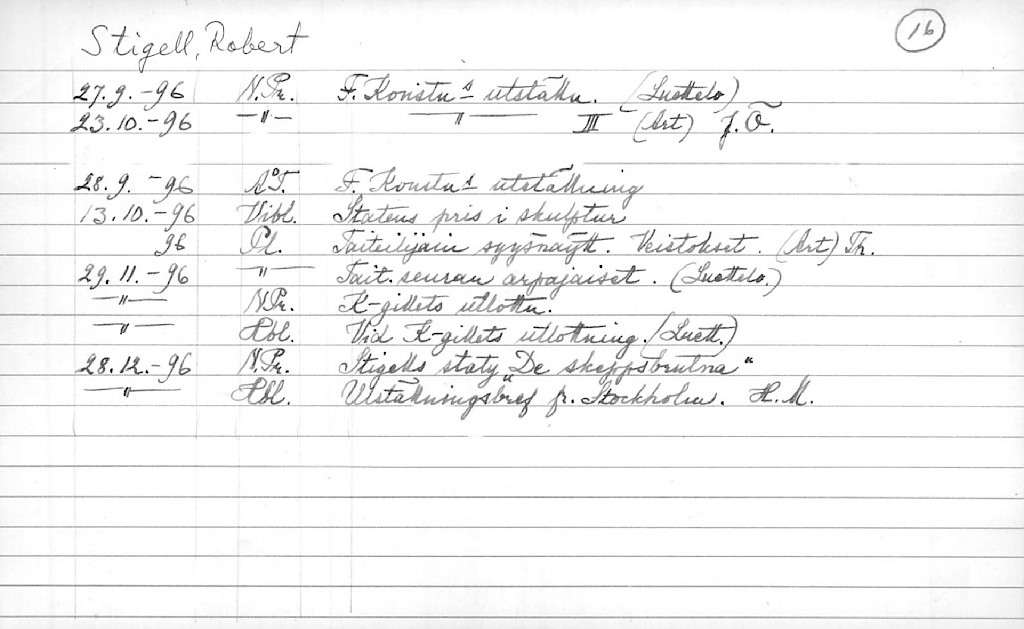 Stigell, Robert
16
27.9.-96 N.Pr. F. Konstn:s utställn. (Luettelo)
23.10.-96 —"— —"— III (Art) J.Ö.
28.9.-96 Å.T. F. Konstn:s utställning
13.10.-96 Vibl. Statens pris i skulptur
96 Pl. Taiteilijain syysnäytt. Veistokset. (Art) Th.
29.11.-96 —"— Tait. seuran arpajaiset. (Luettelo.)
—"— N.Pr. K-gillets utlottn.
—"— Hbl. Vid K-gillets utlottning. (Luett.)
28.12.-96 N.Pr. Stigells staty „De skeppsbrutna"
—"— Hbl. Utställningsbref fr. Stockholm. H.M.